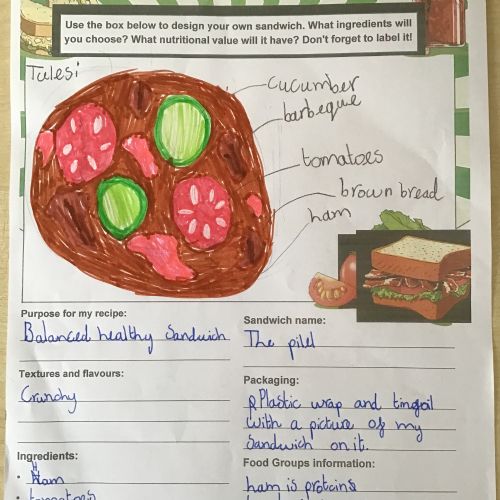 Use the box below to design your own sandwich. What ingredients will
you choose? What nutritional value will it have? Don't forget to label it!
Tulesi
cucumber
barbeque
tomatoes
brown bread
ham
Purpose for my recipe:
Balanced healthy Sandwich
Textures and flavours:
Crunchy
Ingredients:
• Ham
• tomatoes
Sandwich name:
The
Packaging:
Plastic wrap and tingoil
with a picture of my
Sandwich on it.
Food Groups information:
ham is proteins